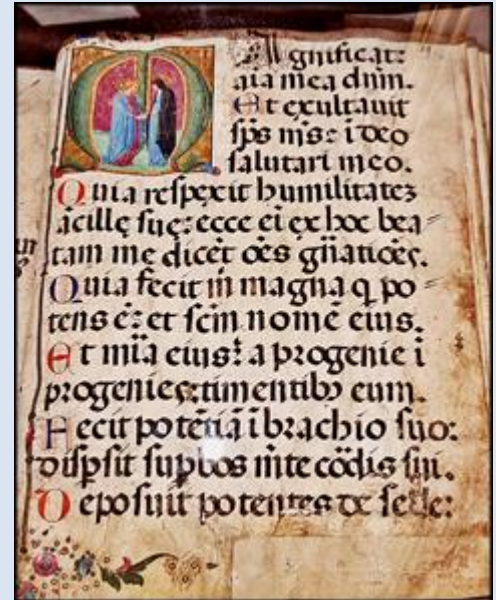 Magnificat:
aīa mea dnm̄.
Et exultauit
sp̄s m̄s: ī deo
salutari meo.
Quia respexit humilitatez
ācillę suę: ecce eī ex hoc bea=
tam me dicēt oēs gn̄atiōēs.
Quia fecit m̄ magna q po=
tens ē: et sc̄m nomē eius.
Et mīa eius: a progenie ī
progenies: timentibȝ eum.
Fecit potētiā ī brachio suo:
disp̄sit supbos m̄te cōdis sui.
Deposuit potentes de sede: